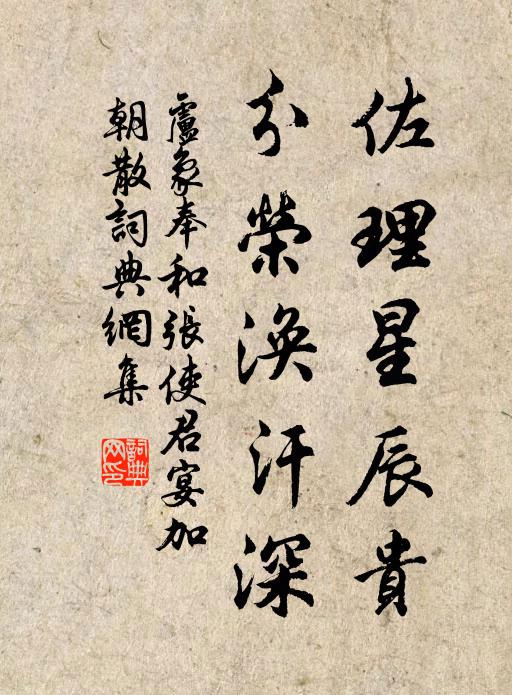 佐理星辰貴
分榮渙汗深
盧象奉和張使君宴加
朝散詞典網集
詞典网印